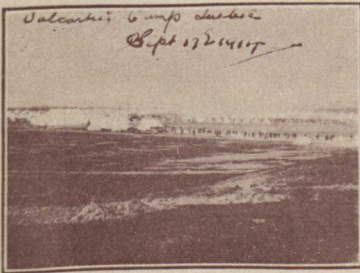 Valcartier Camp Quebec
Sept 17